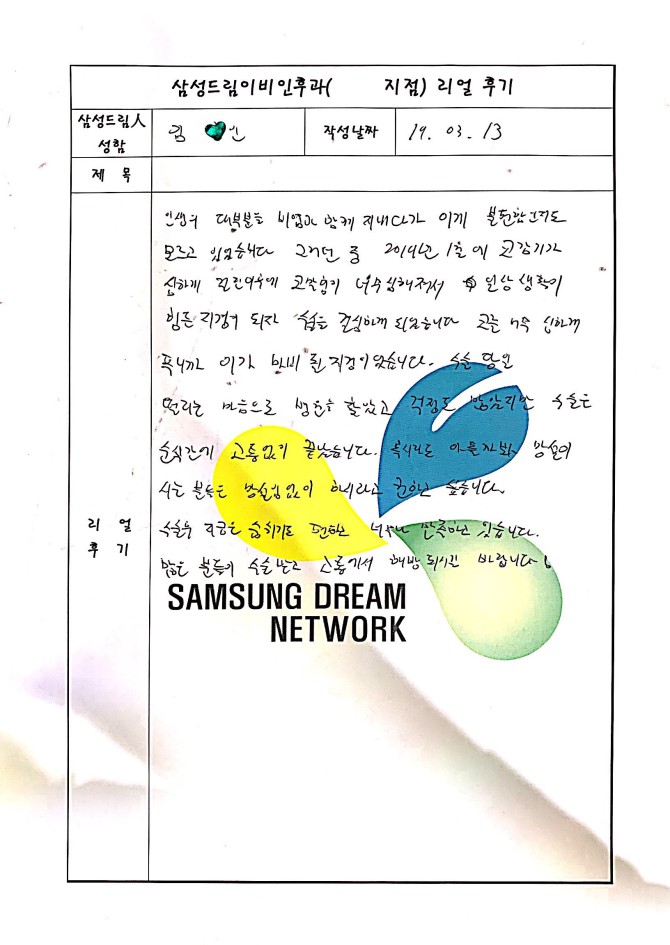 삼성드림이비인후과( 지점) 리얼 후기
삼성드림人 성함
김 인
작성날짜
19. 03. 13
제 목
리 얼 후 기
인생의 대부분을 비염과 함께 지내다가 이게 불편함인지도
모르고 있었습니다 그러던 중 2019년 1월에 코감기가
심하게 걸린이후에 코막힘이 너무심해져서 일상생활이
힘든 지경이 되자 수술을 결심하게 되었습니다 코를 너무 심하게
푸니까 이가 마비 될 지경이었습니다. 수술 당일
떨리는 마음으로 병원을 찾았고 걱정도 많았지만 수술은
순식간에 고통없이 끝났습니다. 혹시라도 아플까봐 망설이
시는 분들은 망설임없이 하시라고 권하고 싶습니다.
수술후 지금은 숨쉬기도 편하고 너무나 만족하고 있습니다.
많은 분들이 수술 받고 고통에서 해방되시길 바랍니다!
SAMSUNG DREAM
NETWORK